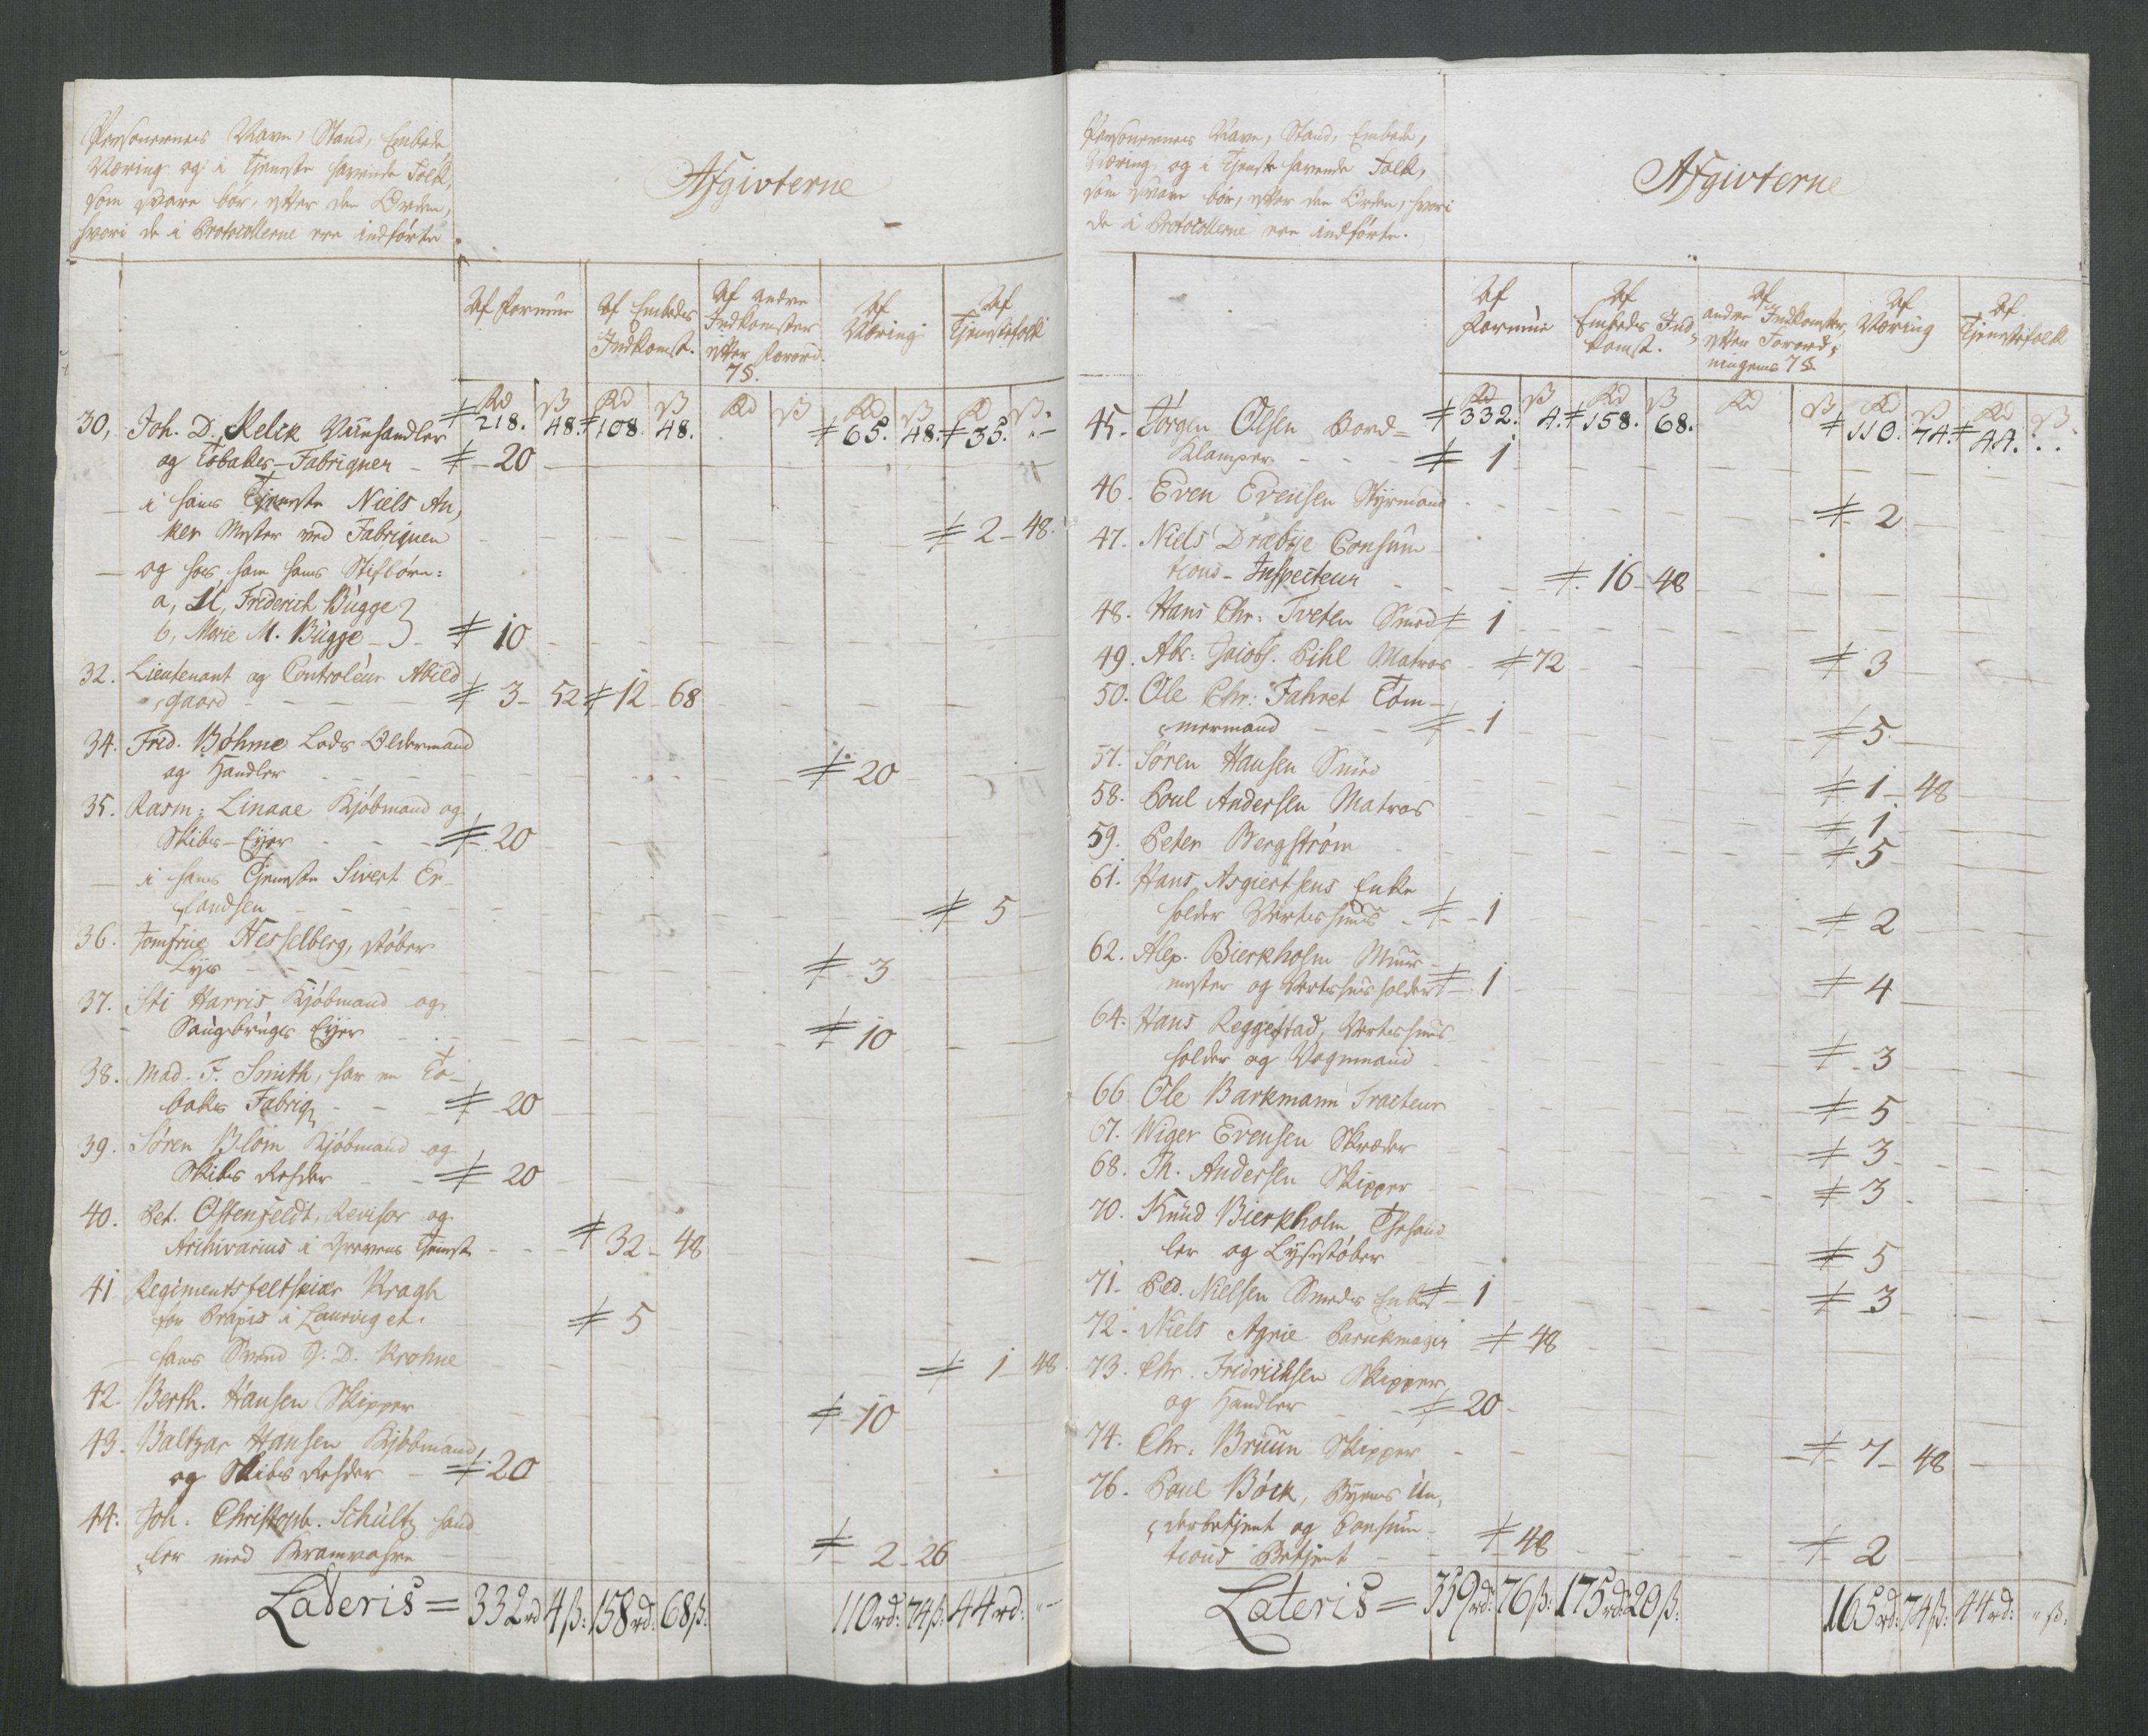 Personernes Navn, Stand, Embede
Næring og i Tjeneste havende Folk,
som svare bør, efter den Orden,
hvori de i Protocollerne ere indførte
Afgivterne
Af Formue
Af Embeds Indkomst.
Af andre Indkomster efter Forord. 7§.
Af Næring
Af Tjenestefolk
Rd ß Rd ß Rd ß Rd ß Rd ß
30, Joh. D. Melik Viinhandler ≠ 218. 48. ≠ 108. 48. ≠ 65. 48. ≠ 35. "
og Tobaks-Fabriquer - ≠ 20
- i hans Tjeneste Niels An,
ker Mester ved Fabriquen ≠ 2 - 48.
- og hos ham hans Stifbørn:
a, U, Friderich Bugge }
b, Marie M. Bugge - } - ≠ 10
32. Lieutenant og Controleur Abild
gaard - ≠ 3 - 52 ≠ 12 - 68
34. Frid. Bøhme Lods Oldermand
og Handler ≠ 20
35. Rasm: Linaae Kjøbmand og
Skibs-Eyer - ≠ 20
- i hans Tjeneste Sivert Er-
landsen ≠ 5
36. Jomfrue Hesselberg, støber
Lys ≠ 3
37. Sti Harris Kjøbmand og
Saugbrugs Eyer ≠ 10
38. Mad. F. Smith, har en To-
baks Fabriq - ≠ 20
39. Søren Blom Kjøbmand og
Skibs Rehder - ≠ 20
40. Pet. Ostenfeldt, Revisor og
Archivarius i Grevens Tjeneste ≠ 32 - 48
41 Regimentsfeltskiær Kragh
for Praxis i Laurvig et. ≠ 5
- hans Svend J. D. Krohne ≠ 1 - 48
42. Berth. Hansen Skipper ≠ 10
43. Baltzar Hansen Kjøbmand
og Skibs Rehder - ≠ 20
44. Joh. Christoph. Schultz hand-
ler med Kramvahre ≠ 2 - 26
Lateris = 332 rd 4 ß: 158 rd: 68 ß: 110 rd: 74 ß: 44 rd: " -
Personernes Navn, Stand, Embede,
Næring, og i Tjeneste havende Folk,
som svare bør, efter den Orden, hvori
de i Protocollerne ere indførte.
Afgivterne
Af Formue
Af Embeds Ind=komst.
Af andre Indkomster, efter Forord=ningens 7 §.
Af Næring
Af Tjenestefolk
Rd ß Rd ß Rd ß Rd ß Rd ß
45. Jørgen Olsen Bord= ≠ 332. 4. ≠ 158. 68. ≠ 110. 74. ≠ 44. . .
Klamper. - ≠ 1
46. Even Evensen Styrmand ≠ 2
47. Niels Dræbye Consum
tions-Inspecteur ≠ 16 - 48
48. Hans Chr. Tveten Smed ≠ 1
49. Abr: Jacobs. Pihl Matros - ≠ 72 ≠ 3
50. Ole Chr: Fahret Tøm-
mermand - ≠ 1 ≠ 5
57. Søren Hansen Smed ≠ 1 - 48
58. Poul Andersen Matros ≠ 1
59. Peter Bergstrøm ≠ 5
61. Hans Asgiertsens Enke
holder Vertshuus - ≠ 1 ≠ 2
62. Alex. Bierkholm Muur-
mester og Vertshuusholder ≠ 1 ≠ 4
64. Hans Reggestad, Vertshuus
holder og Vognmand ≠ 3
66 Ole Barkmann Tracteur ≠ 5
67. Wiger Evensen Skræder ≠ 3
68. Th. Andersen Skipper ≠ 3
70. Knud Bierkholm Thehand
ler og Lysestøber ≠ 5
71. Ped. Nielsen Smeds Enke ≠ 1 ≠ 3
72. Niels Agrie Parukmager ≠ 48
73. Chr. Fridrichsen Skipper,
og Handler - ≠ 20
74. Chr. Bruun Skipper ≠ 7 - 48
76. Poul Bøck, Byens Un,
derbetjent og Consum-
tions Betjent - ≠ 48 ≠ 2
Lateris = 359 rd: 76 ß: 175 rd: 20 ß: 165 rd: 74 ß: 44 rd: " ß: